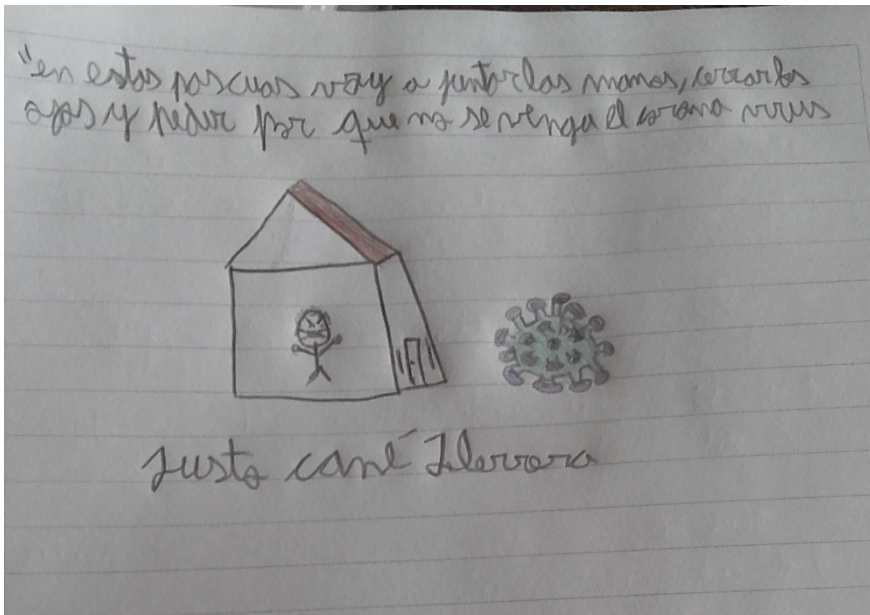 "en estas pascuas voy a juntar las manos, cerrar los
ojos y pedir por que no se venga el corona virus
Justo cané Herrera